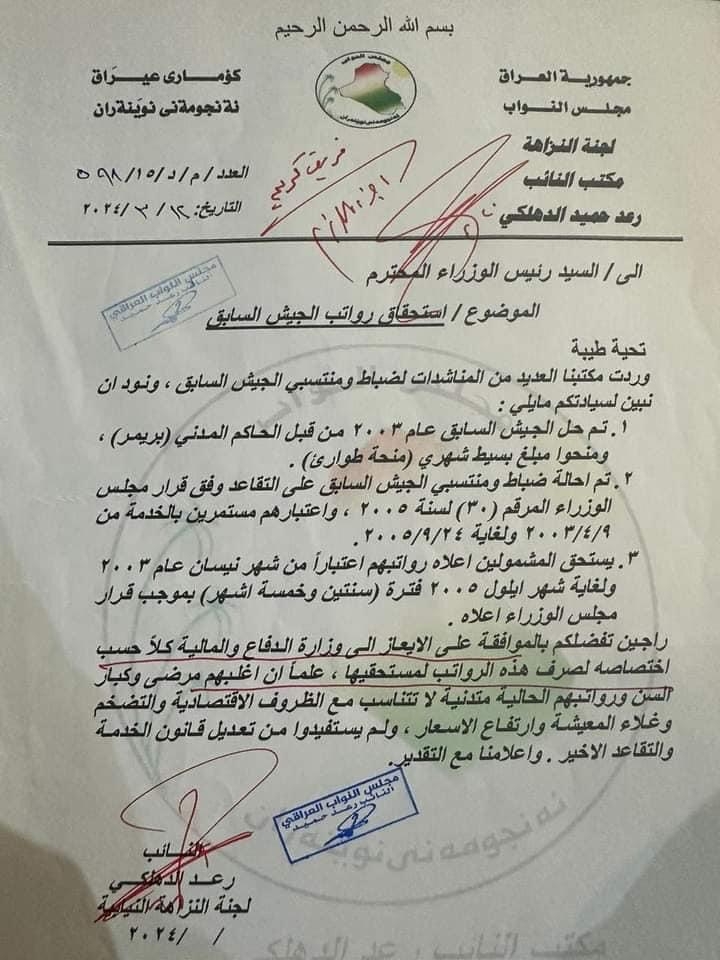 بسم الله الرحمن الرحيم
جمهورية العراق
مجلس النواب
لجنة النزاهة
مكتب النائب
رعد حميد الدهلكي
مجلس النواب
كۆماری عێراق
ئةنجومةنی نوێنةران
العدد/م/د/١٥/٥٩٨
التاريخ: ١٢/ ٣ /٢٠٢٤
الى / السيد رئيس الوزراء المحترم
مجلس النواب العراقي
النائب رعد حميد
الموضوع / استحقاق رواتب الجيش السابق
تحية طيبة
وردت مكتبنا العديد من المناشدات لضباط ومنتسبي الجيش السابق ، ونود ان
نبين لسيادتكم مايلي :
١. تم حل الجيش السابق عام ٢٠٠٣ من قبل الحاكم المدني (بريمر) ،
ومنحوا مبلغ بسيط شهري (منحة طوارئ) .
٢. تم احالة ضباط ومنتسبي الجيش السابق على التقاعد وفق قرار مجلس
الوزراء المرقم (٣٠) لسنة ٢٠٠٥ ، واعتبارهم مستمرين بالخدمة من
٢٠٠٣/٤/٩ ولغاية ٢٠٠٥/٩/٢٤ .
٣. يستحق المشمولين اعلاه رواتبهم اعتباراً من شهر نيسان عام ٢٠٠٣
ولغاية شهر ايلول ٢٠٠٥ فترة (سنتين وخمسة اشهر) بموجب قرار
مجلس الوزراء اعلاه .
راجين تفضلكم بالموافقة على الايعاز الى وزارة الدفاع والمالية كلاً حسب
اختصاصه لصرف هذه الرواتب لمستحقيها ، علماً ان اغلبهم مرضى وكبار
السن ورواتبهم الحالية متدنية لا تتناسب مع الظروف الاقتصادية والتضخم
وغلاء المعيشة وارتفاع الاسعار ، ولم يستفيدوا من تعديل قانون الخدمة
والتقاعد الاخير . واعلامنا مع التقدير.
مجلس النواب العراقي
النائب رعد حميد
النائب
رعد الدهلكي
لجنة النزاهة النيابية
/ /٢٠٢٤
مكتب النائب رعد الدهلكي